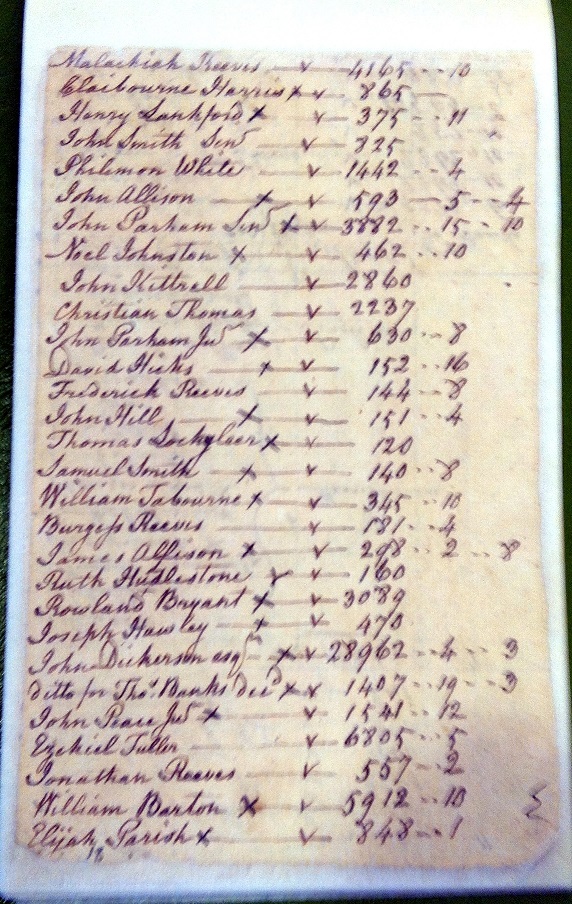 Malachiah Reeves — v — 4165 .. 10
Claibourne Harris x v — 865 —
Henry Lankford x v — 375 .. 11
John Smith Senr — v — 825
Philemon White — v — 1442 .. 4
John Allison — x — v — 593 — 5 .. 4
John Parham Senr x v — 3882 .. 15 .. 10
Noel Johnston x — v — 462 .. 10
John Kittrell — v — 2860
Christian Thomas — v — 2237
John Parham Jur x — v — 630 .. 8
David Hicks — x — v — 152 .. 16
Frederick Reeves — v — 144 .. 8
John Hill — x — v — 151 .. 4
Thomas x — v — 120
Samuel Smith — x — v — 140 .. 8
William Tabourne x — v — 345 .. 10
Burgess Reeves — v — 181 .. 4
James Allison x — v — 298 .. 2 .. 8
Ruth Hudlestone x — v — 160
Rowland Bryant x — v — 3089
Joseph Hawley — x — v — 470
John Dickerson esqr — x v — 28962 .. 4 .. 3
ditto for Thos. Banks Decd x v — 1407 .. 19 .. 3
John Peace Jur x — v — 1541 .. 12
Ezekiel Fuller — v — 6805 .. 5
Jonathan Reeves — v — 557 .. 2
William Barton x — v — 5912 .. 10
Elijah Parish x — v — 848 .. 1